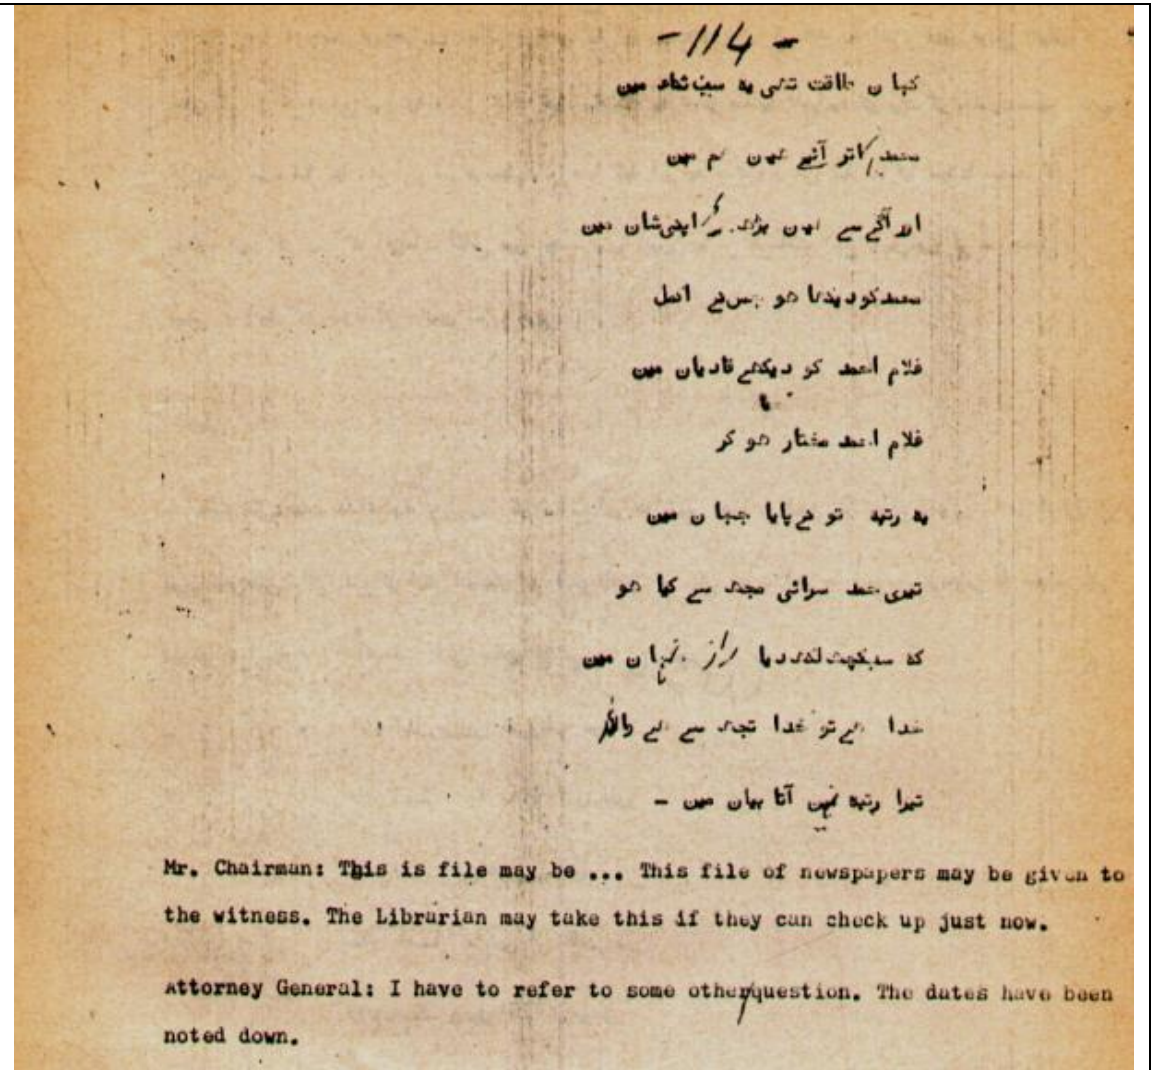 -114-
کہا ن طاقت تھی یہ سیف مین
محمد اتر آئے ہین ہم مین
اور آگے سے ہین بڑھ کر اپنی شان مین
محمد کو دیکھنا ہو جس نے اکمل
غلام احمد کو دیکھے قادیان مین
غلام احمد مختار ہو کر
یہ رتبہ تو نے پایا جہا ن مین
تیری مدح سرائی مجھ سے کیا ہو
کہ سب کچھ لکھ دیا راز نہا ن مین
خدا ہے تو خدا تجھ سے ہے واللہ
تیرا رتبہ نہین آتا بیان مین -
Mr. Chairman: This is file may be ... This file of newspapers may be given to
the witness. The Librarian may take this if they can check up just now.
Attorney General: I have to refer to some other question. The dates have been
noted down.